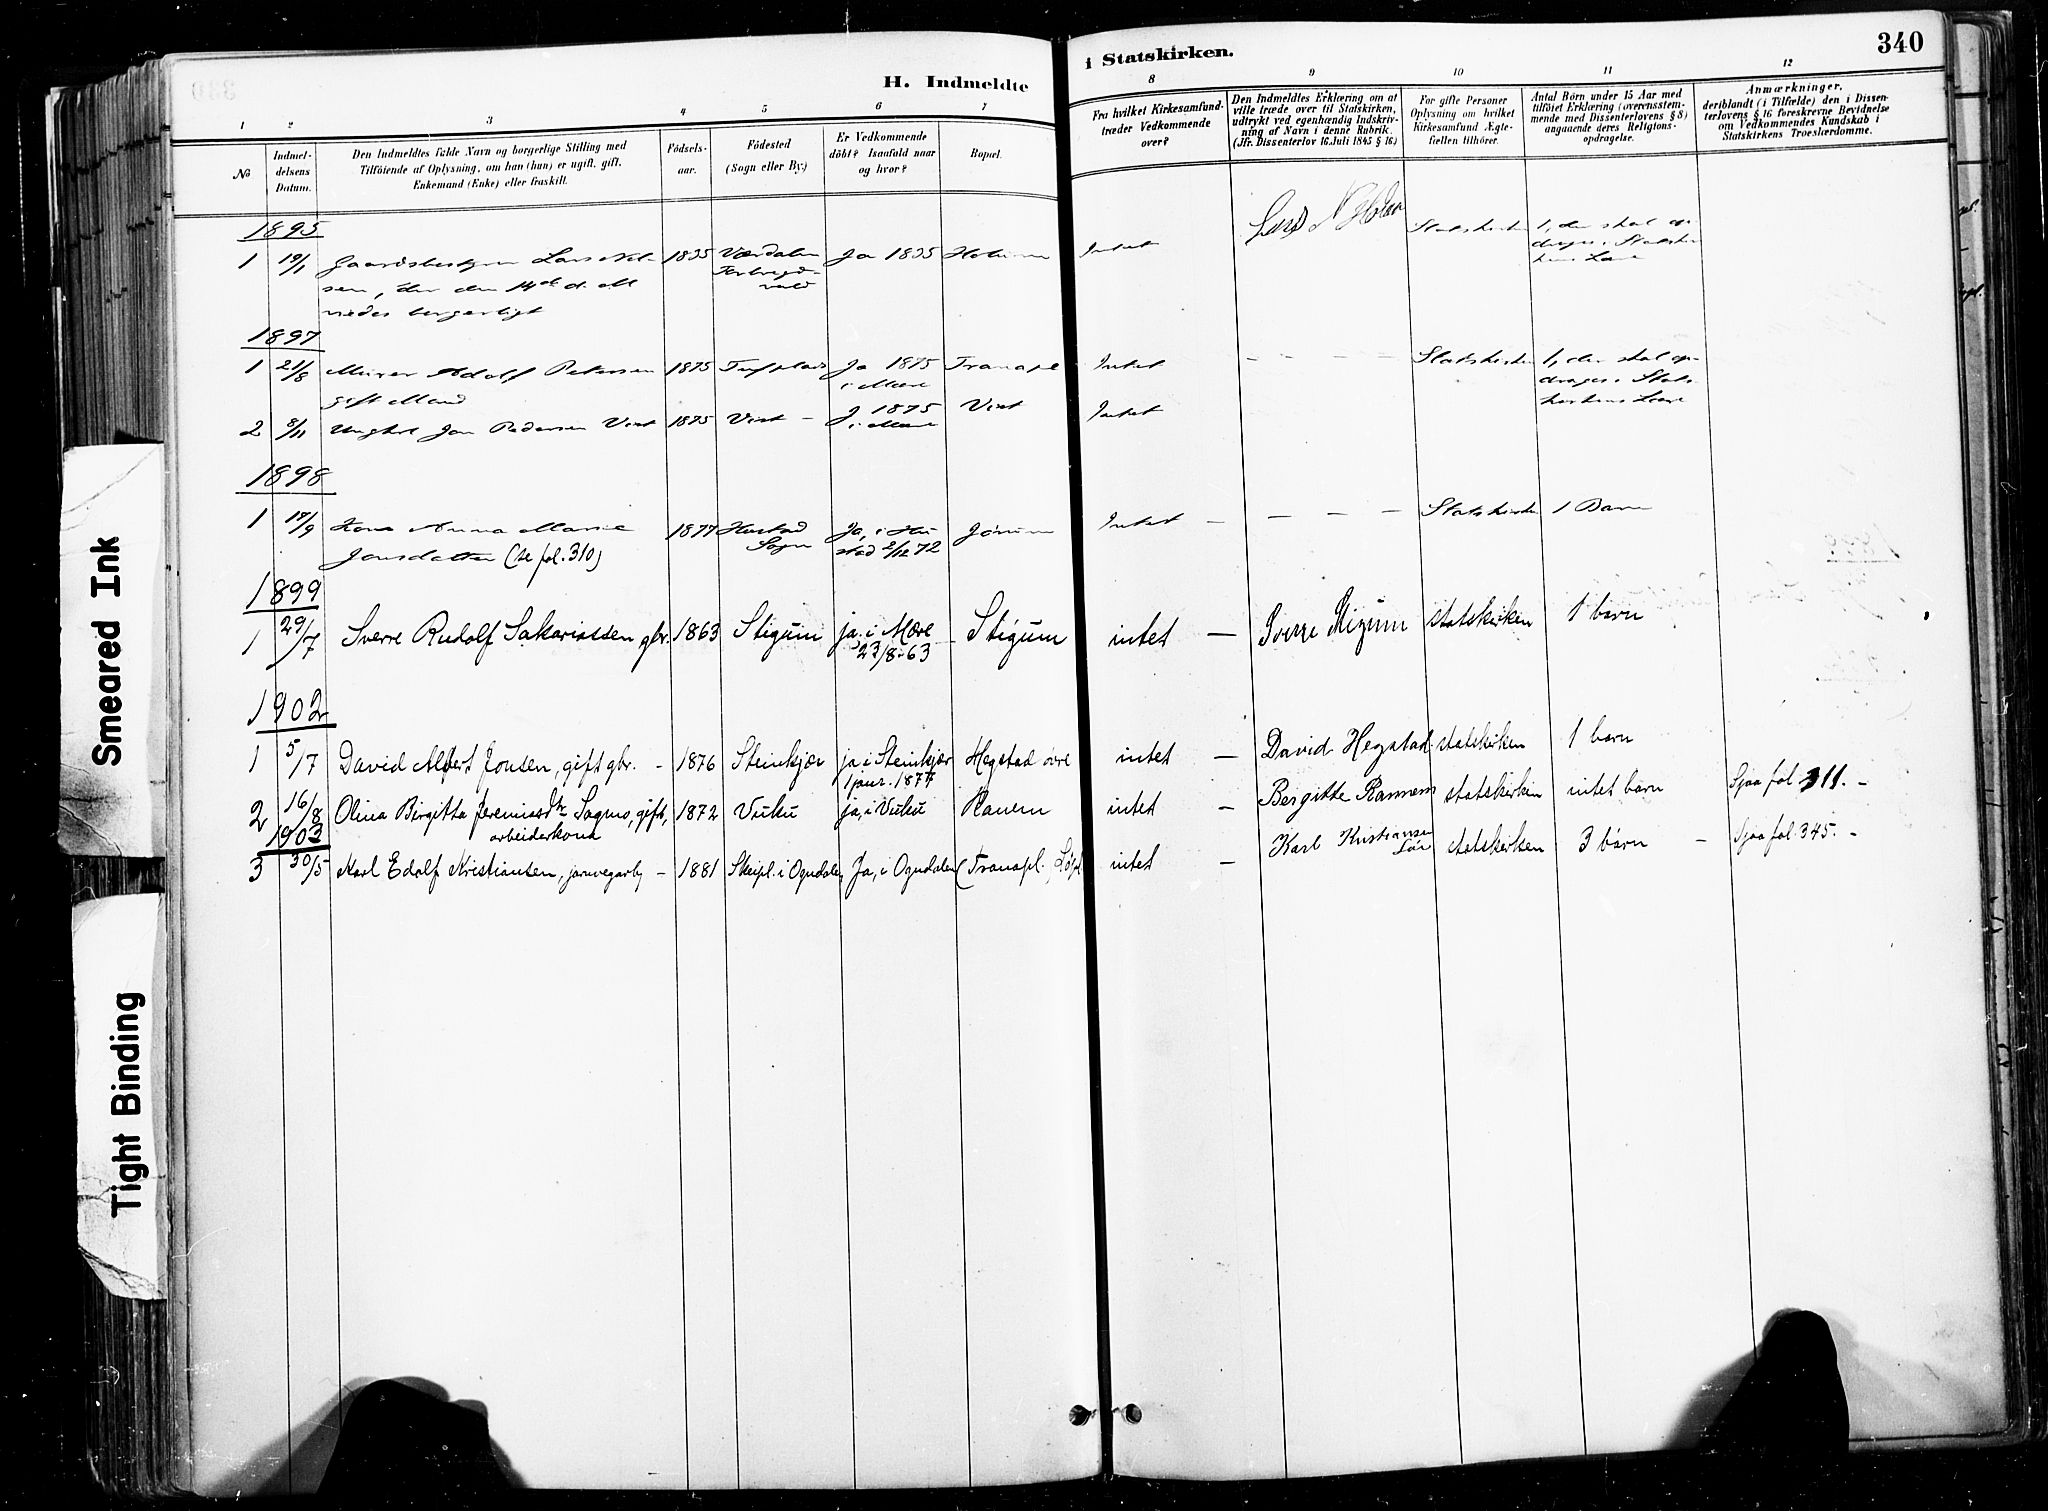 340
H. Indmeldte i Statskirken.
1 2 3 4 5 6 7 8 9 10 11 12
No
Indmel-
delsens
Datum.
Den Indmeldtes fulde Navn og borgerlige Stilling med
Tilföiende af Oplysning, om han (hun) er ugift, gift,
Enkemand (Enke) eller fraskilt.
Födsels-
aar.
Födested
(Sogn eller By.)
Er Vedkommende
döbt? Isaafald naar
og hvor?
Bopæl.
Fra hvilket Kirkesamfund
træder Vedkommende
over?
Den Indmeldtes Erklæring om at
ville træde over til Statskirken,
udtrykt ved egenhændig Indskriv-
ning af Navn i denne Rubrik.
(Jfr. Dissenterlov 16. Juli 1845 § 16.)
For gifte Personer
Oplysning om hvilket
Kirkesamfund Ægte-
fællen tilhörer.
Antal Börn under 15 Aar med
tilföiet Erklæring (overensstem-
mende med Dissenterlovens § 8)
angaaende deres Religions-
opdragelse.
Anmærkninger,
deriblandt (i Tilfælde) den i Dissen-
terlovens § 16 foreskrevne Bevidnelse
om Vedkommendes Kundskab i
Statskirkens Troeslærdomme.
1895
1 19/1 Lars 1835 Værdalen Ja 1835 Intet Statskirken 1, der skal op-
drages i Statskir-
kens Lære
sen, der den 14de d. M
viedes borgerligt
1897
1 21/8 Murer Adolf Petersen 1875 Ja 1875 Tranapl Intet - - - - Statskirken 1, der skal op-
gift Mand i Mære drages i Stats-
kirkens Lære
2 8/11 Ungkarl Jon Pedersen Vist 1875 Vist - J 1875 Vist Intet
i Mære
1898
1 17/9 Kone Anna Marie 1877 Hustad Ja, i Hu Jørum Intet - - - - Statskirken 1 Barn
Jonsdatter (se fol. 310) Sogn stad 2/12 72
1899
1 29/7 Sverre Rudolf Sakariassen gbr. 1863 Stigum ja. i Mære Stigum intet - Sverre Stigum statskirken 1 barn
23/8-63
1902
1 5/7 David Albert Jonsen, gift gbr. - 1876 Steinkjær ja i Steinkjær Hegstad övre intet - David Hegstad statskirken 1 barn
1 jan. 1877
2 16/8 Olina Birgitta Jeremiasdtr Sagmo, gift, 1872 Vuku ja, i Vuku Ranem intet - Bergitte Rannem statskirken intet barn Sjaa fol 311. -
arbeiderkona
1903
3 30/5 Karl Edolf Kristiansen, jarnvegarb. - 1881 Skeipl. i Ogndalen Ja, i Ogndalen (Tranapl. intet - Karl Kristiansen statskirken 3 börn - Sjaa fol. 345. -
Smeared Ink
Tight Binding